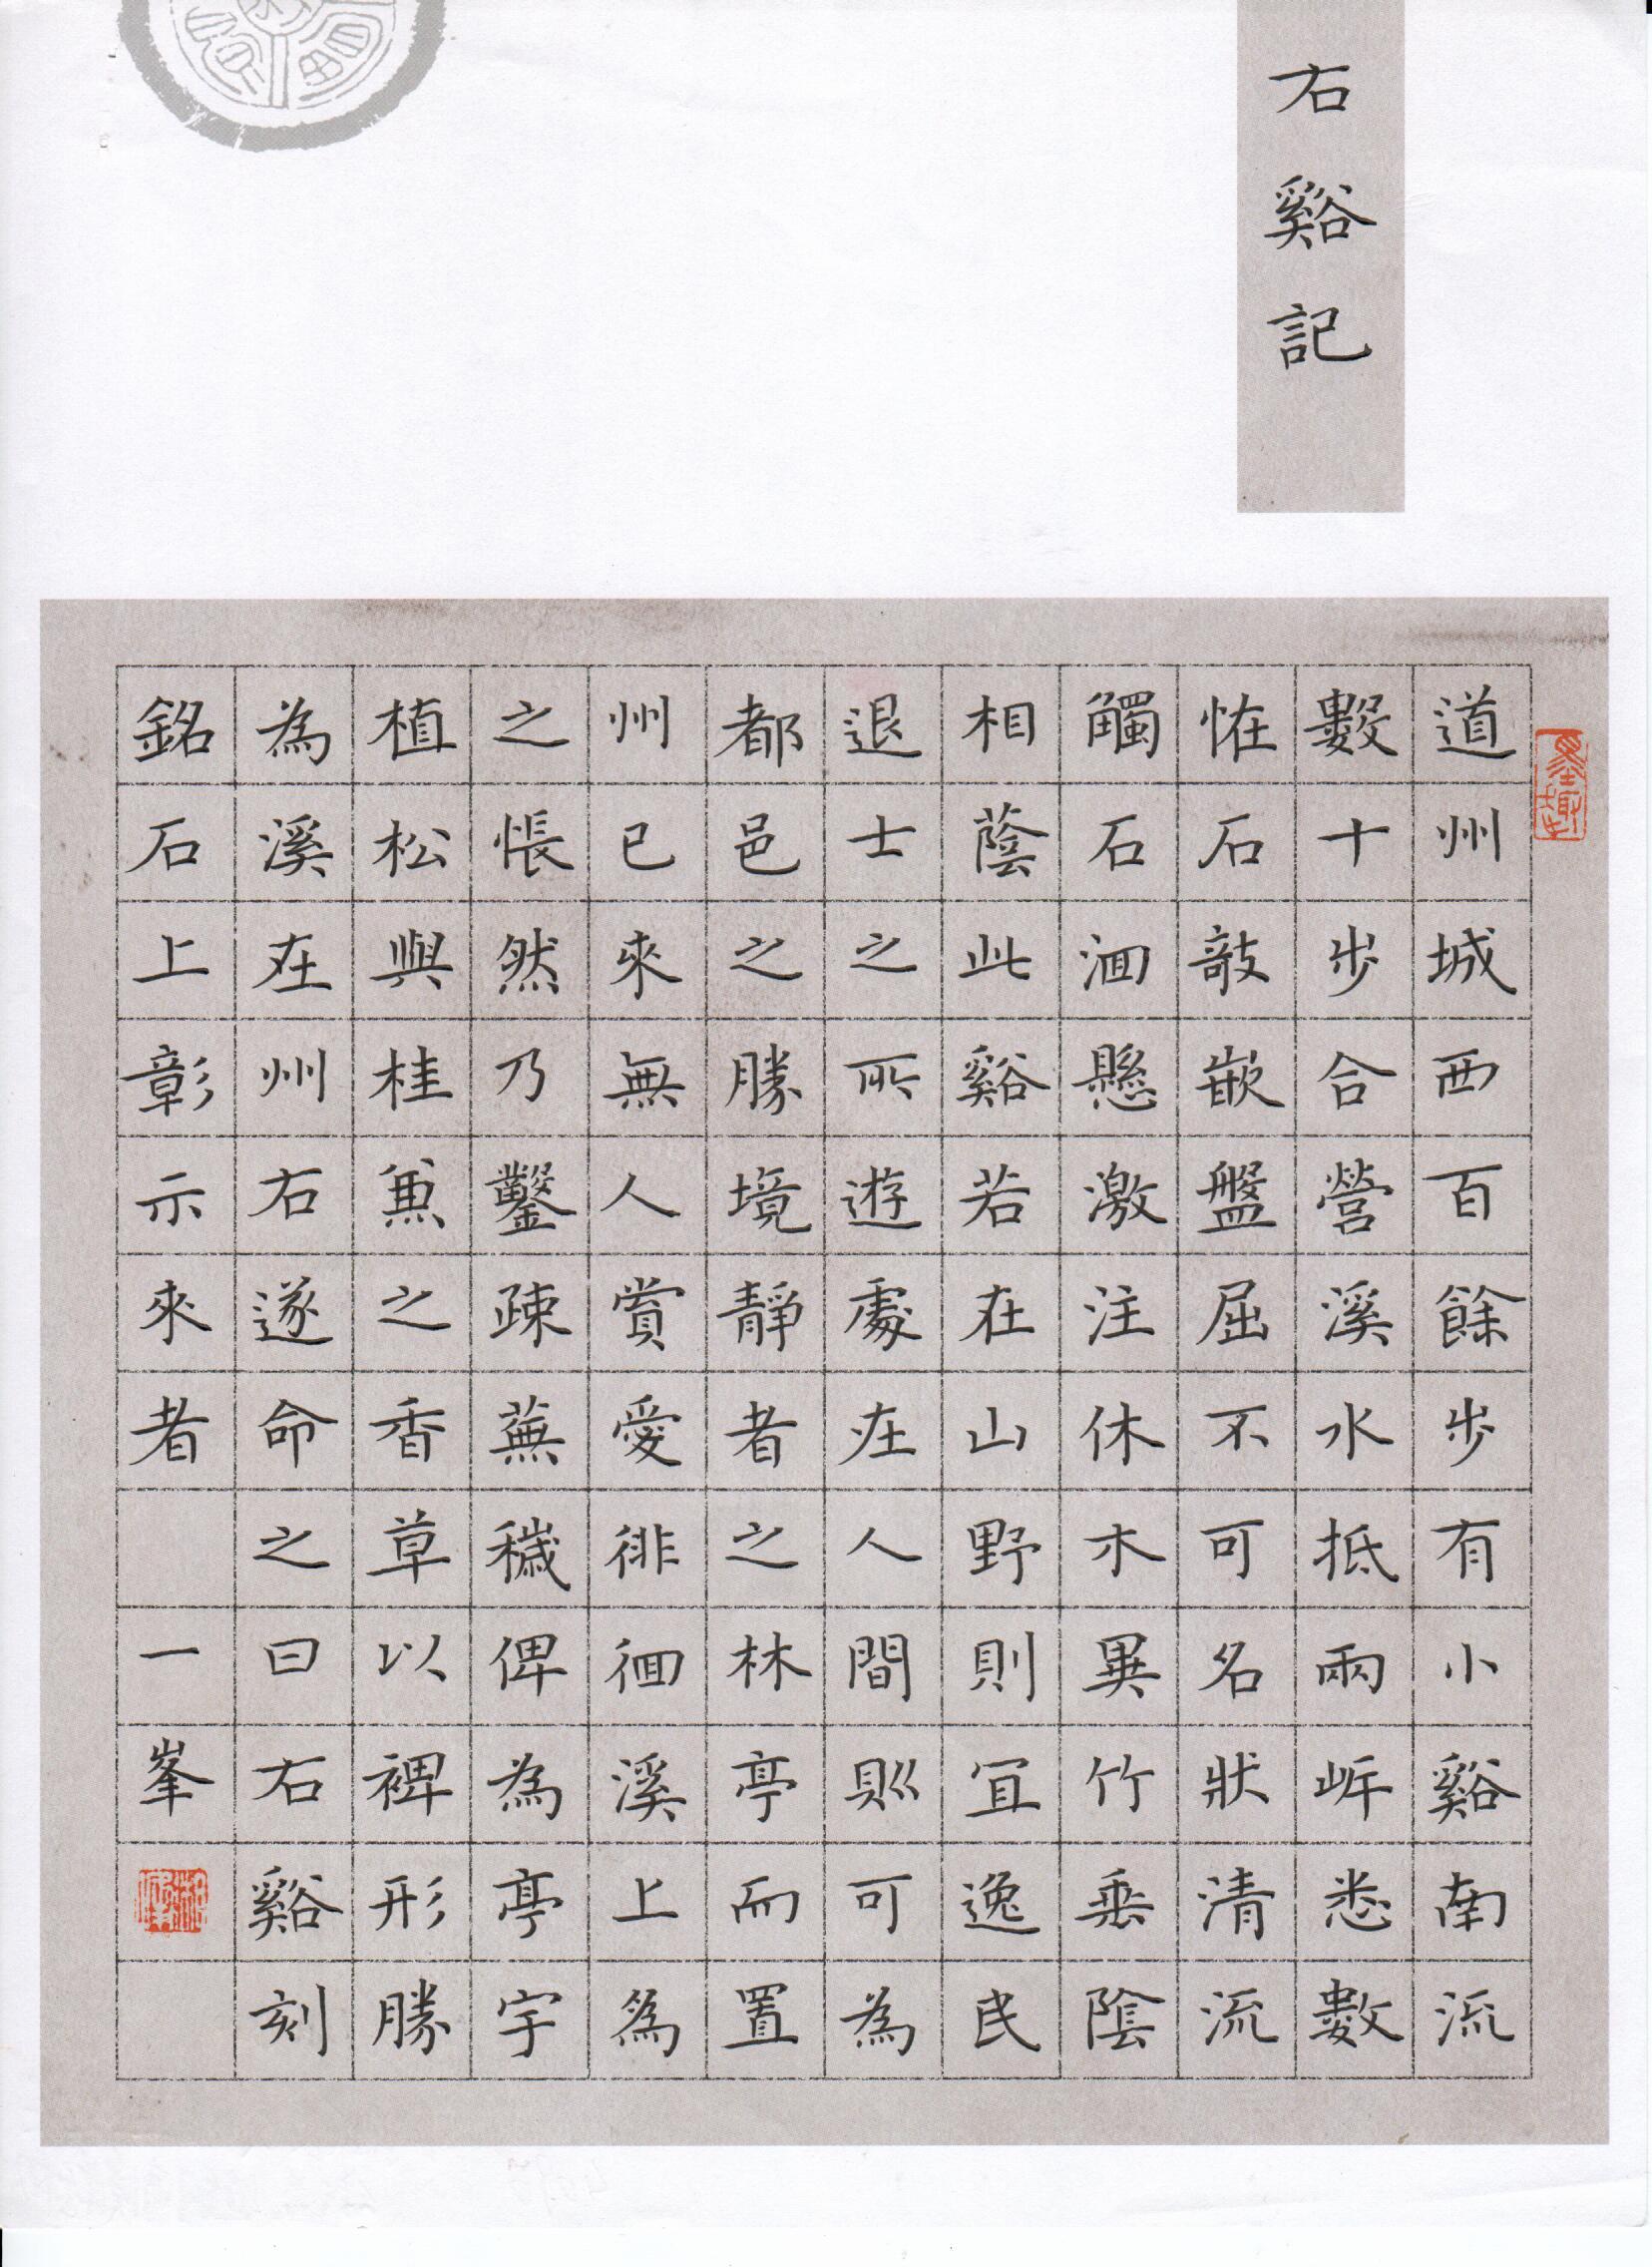 右谿記
道州城西百餘步有小谿南流
數十步合營溪水抵兩岸悉數
恠石敧嵌盤屈不可名狀清流
觸石洄懸激注休木異竹垂陰
相蔭此谿若在山野則宜逸民
退士之所遊處在人間則可為
都邑之勝境靜者之林亭而置
州已來無人賞愛徘徊溪上為
之悵然乃鑿疎蕪穢俾為亭宇
植松與桂兼之香草以裨形勝
為溪在州右遂命之曰右谿刻
銘石上彰示來者 一峯